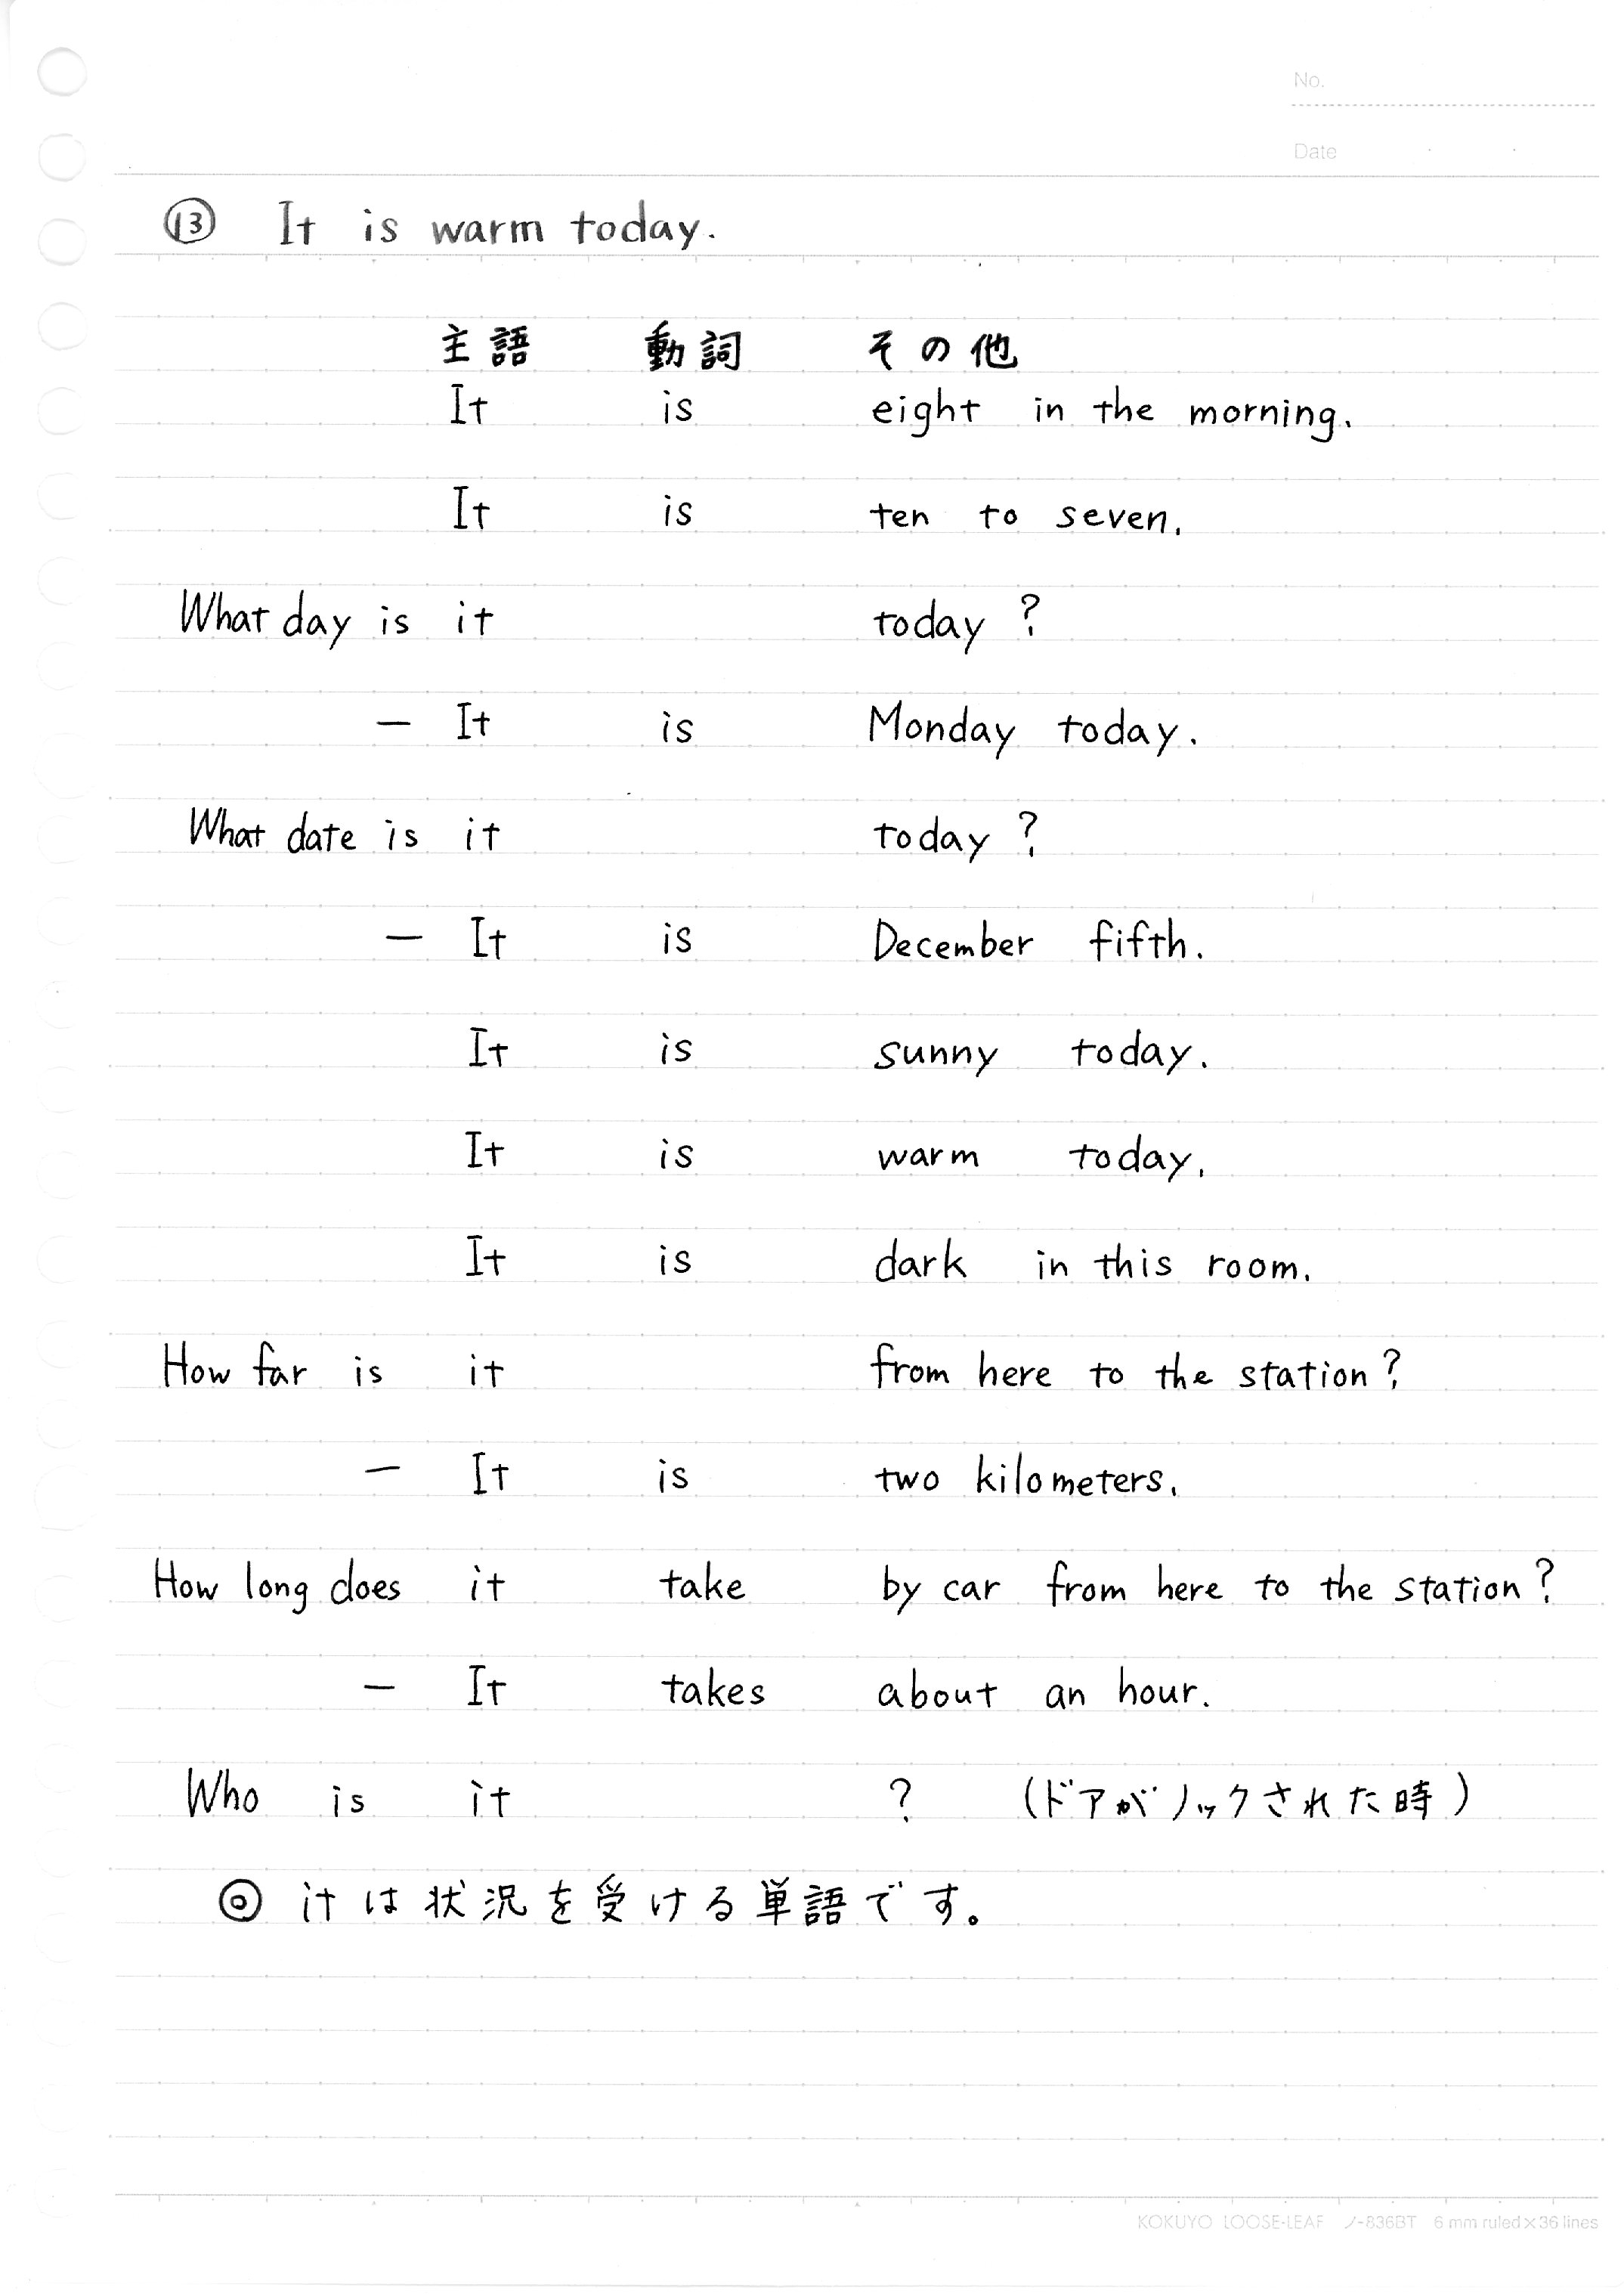 No.
Date
⑬ It is warm today.
主語 動詞 その他
It is eight in the morning.
It is ten to seven.
What day is it today ?
— It is Monday today.
What date is it today ?
— It is December fifth.
It is sunny today.
It is warm today.
It is dark in this room.
How far is it from here to the station ?
— It is two kilometers.
How long does it take by car from here to the station ?
— It takes about an hour.
Who is it ? (ドアがノックされた時)
◎ itは状況を受ける単語です。
KOKUYO LOOSE-LEAF ノ-836BT 6 mm ruled×36 lines